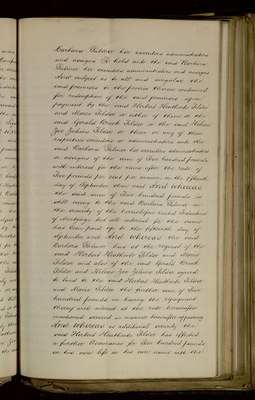 Barbara Palmer her executors administrators
and assigns To hold unto the said Barbara
Palmer her executors administrators and assigns
And subject as to all and singular the
said premises to the proviso therein contained
for redemption of the said premises upon
payment by the said Herbert Heathcote
and Maria or either of them or the
said Gerald or the said
or them or any of them
respective executors or administrators unto the
said Barbara Palmer her executors administrators
or assigns of the sum of Five hundred pounds
with interest for the same after the rate of
Five pounds per cent per annum on the fifteenth
day of September then next And whereas
the said sum of Five hundred pounds is
still owing to the said Barbara Palmer on
the security of the hereinbefore recited Indenture
of Mortgage but all interest for the same
has been paid up to the fifteenth day of
September And whereas the said
Barbara Palmer has at the request of the
said Herbert Heathcote and Maria
and also of the said Gerald
and agreed
to lend to the said Herbert Heathcote
and Maria the further sum of Five
hundred pounds on having the repayment
thereof with interest at the rate hereinafter
mentioned secured in manner hereinafter appearing
And whereas as additional security the
said Herbert Heathcote has effected
a further Assurance for Five hundred pounds
on his own life in his own name with the